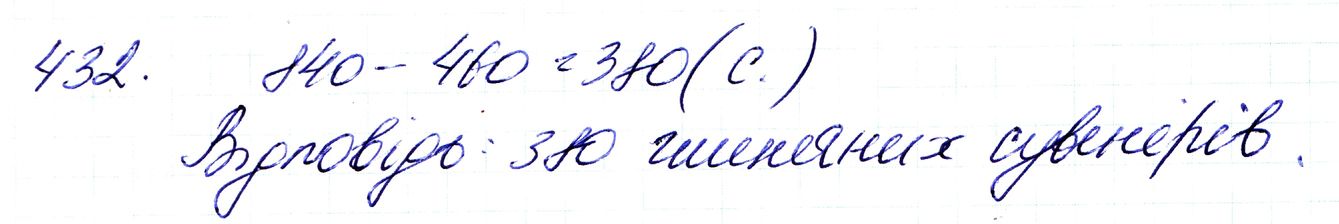 432. 840 - 460 = 380 (с.)
Відповідь: 380 глиняних сувенірів.